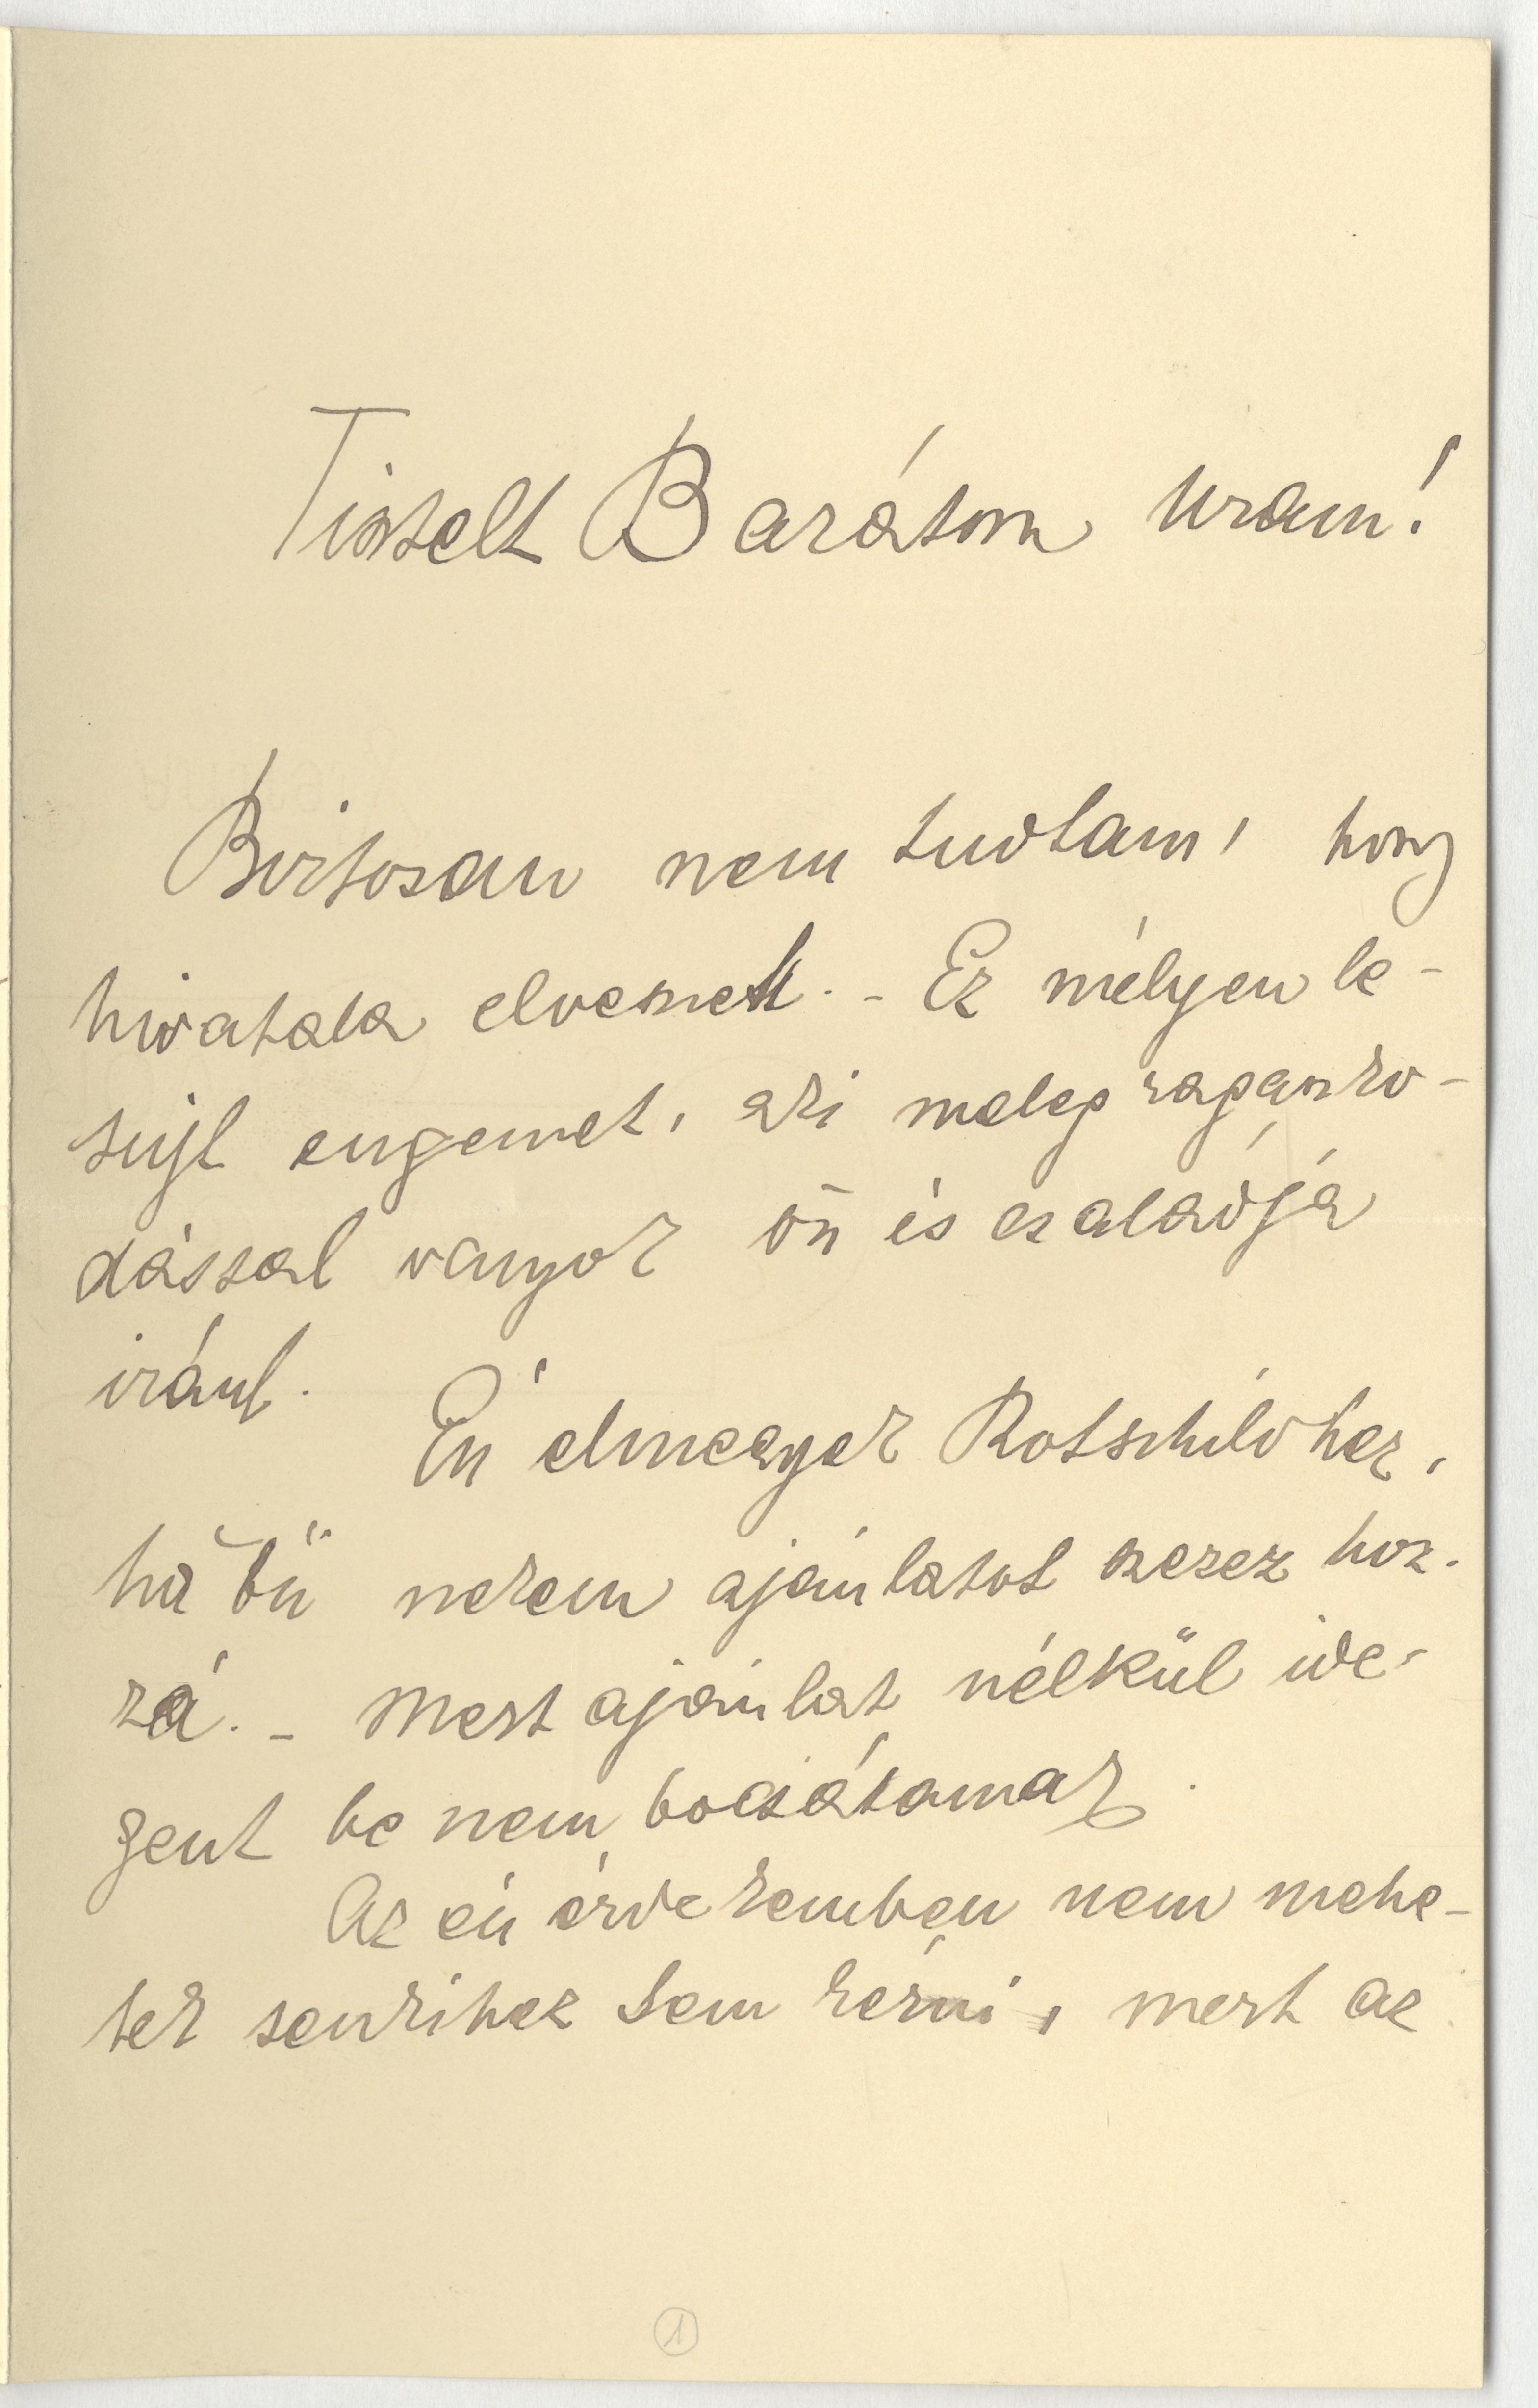 Tisztelt Barátom Uram!
Biztosan nem tudtam, hogy
hivatala elveszett. - Ez mélyen le-
sujt engemet, aki meleg ragaszko-
dással vagyok ön és családja
iránt.
Én elmegyek Rotschildhez,
ha ön nekem ajánlatot szerez hoz-
zá. - Mert ajánlat nélkül ide-
gent be nem bocsátanak.
Az én érdekemben nem mehe-
tek senkihez sem kérni, mert az
1